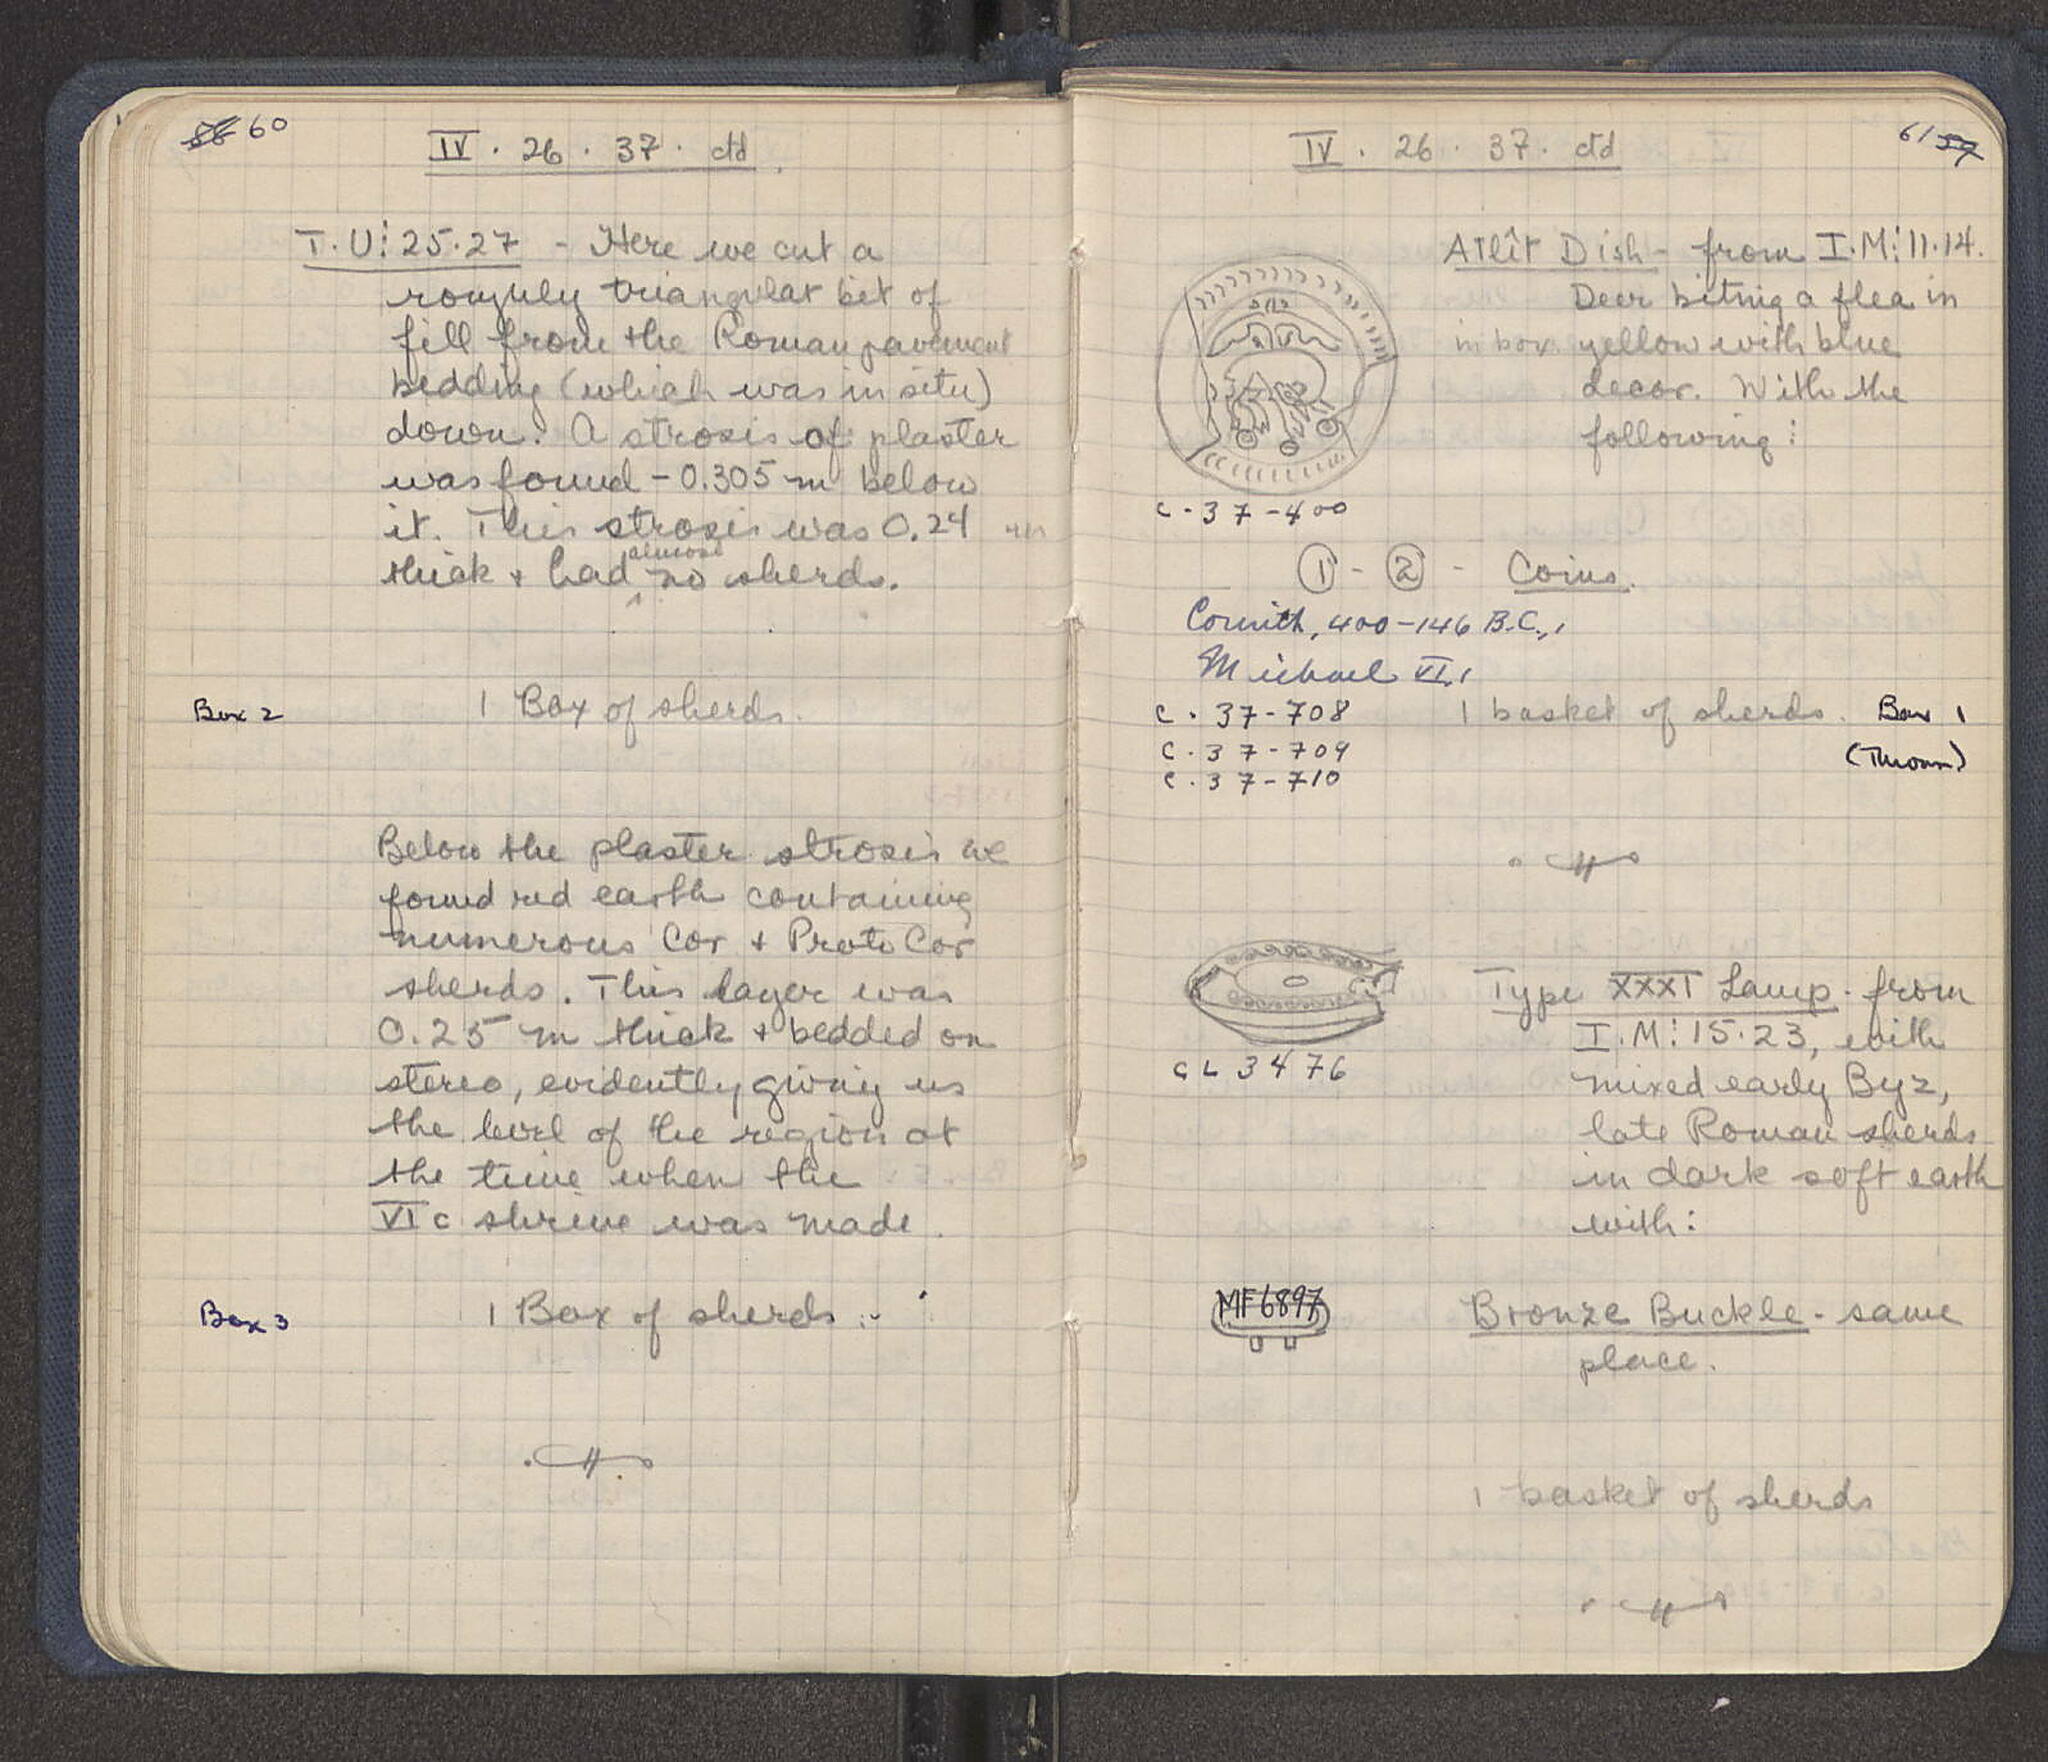 58 60
IV . 26 . 37 . ctd
T.U:25.27 - Here we cut a
roughly triangular bit of
fill from the Roman pavement
bedding (which was in situ)
down. A strosis of plaster
was found - 0.305 m below
it. This strosis was 0.24 m
thick + had almost no sherds.
Box 2 1 Box of sherds.
Below the plaster strosis we
found red earth containing
numerous Cor + Proto Cor
sherds. This layer was
0.25 m thick + bedded on
stereo, evidently giving us
the level of the region at
the time when the
VI c shrine was made.
Box 3 1 Box of sherds.
61 59
IV . 26 . 37 . ctd
Atlît Dish - from I.M:11.14.
Deer biting a flea in
in box. yellow with blue
decor. With the
following:
C-37-400
1 - 2 - Coins.
Corinth, 400-146 B.C., 1
Michael VI, 1
C.37-708 1 basket of sherds. Box 1
C.37-709 (Thrown)
C.37-710
Type XXXI Lamp - from
I.M:15.23, with
CL 3476
mixed early Byz,
late Roman sherds
in dark soft earth
with:
MF6897 Bronze Buckle - same
place.
1 basket of sherds